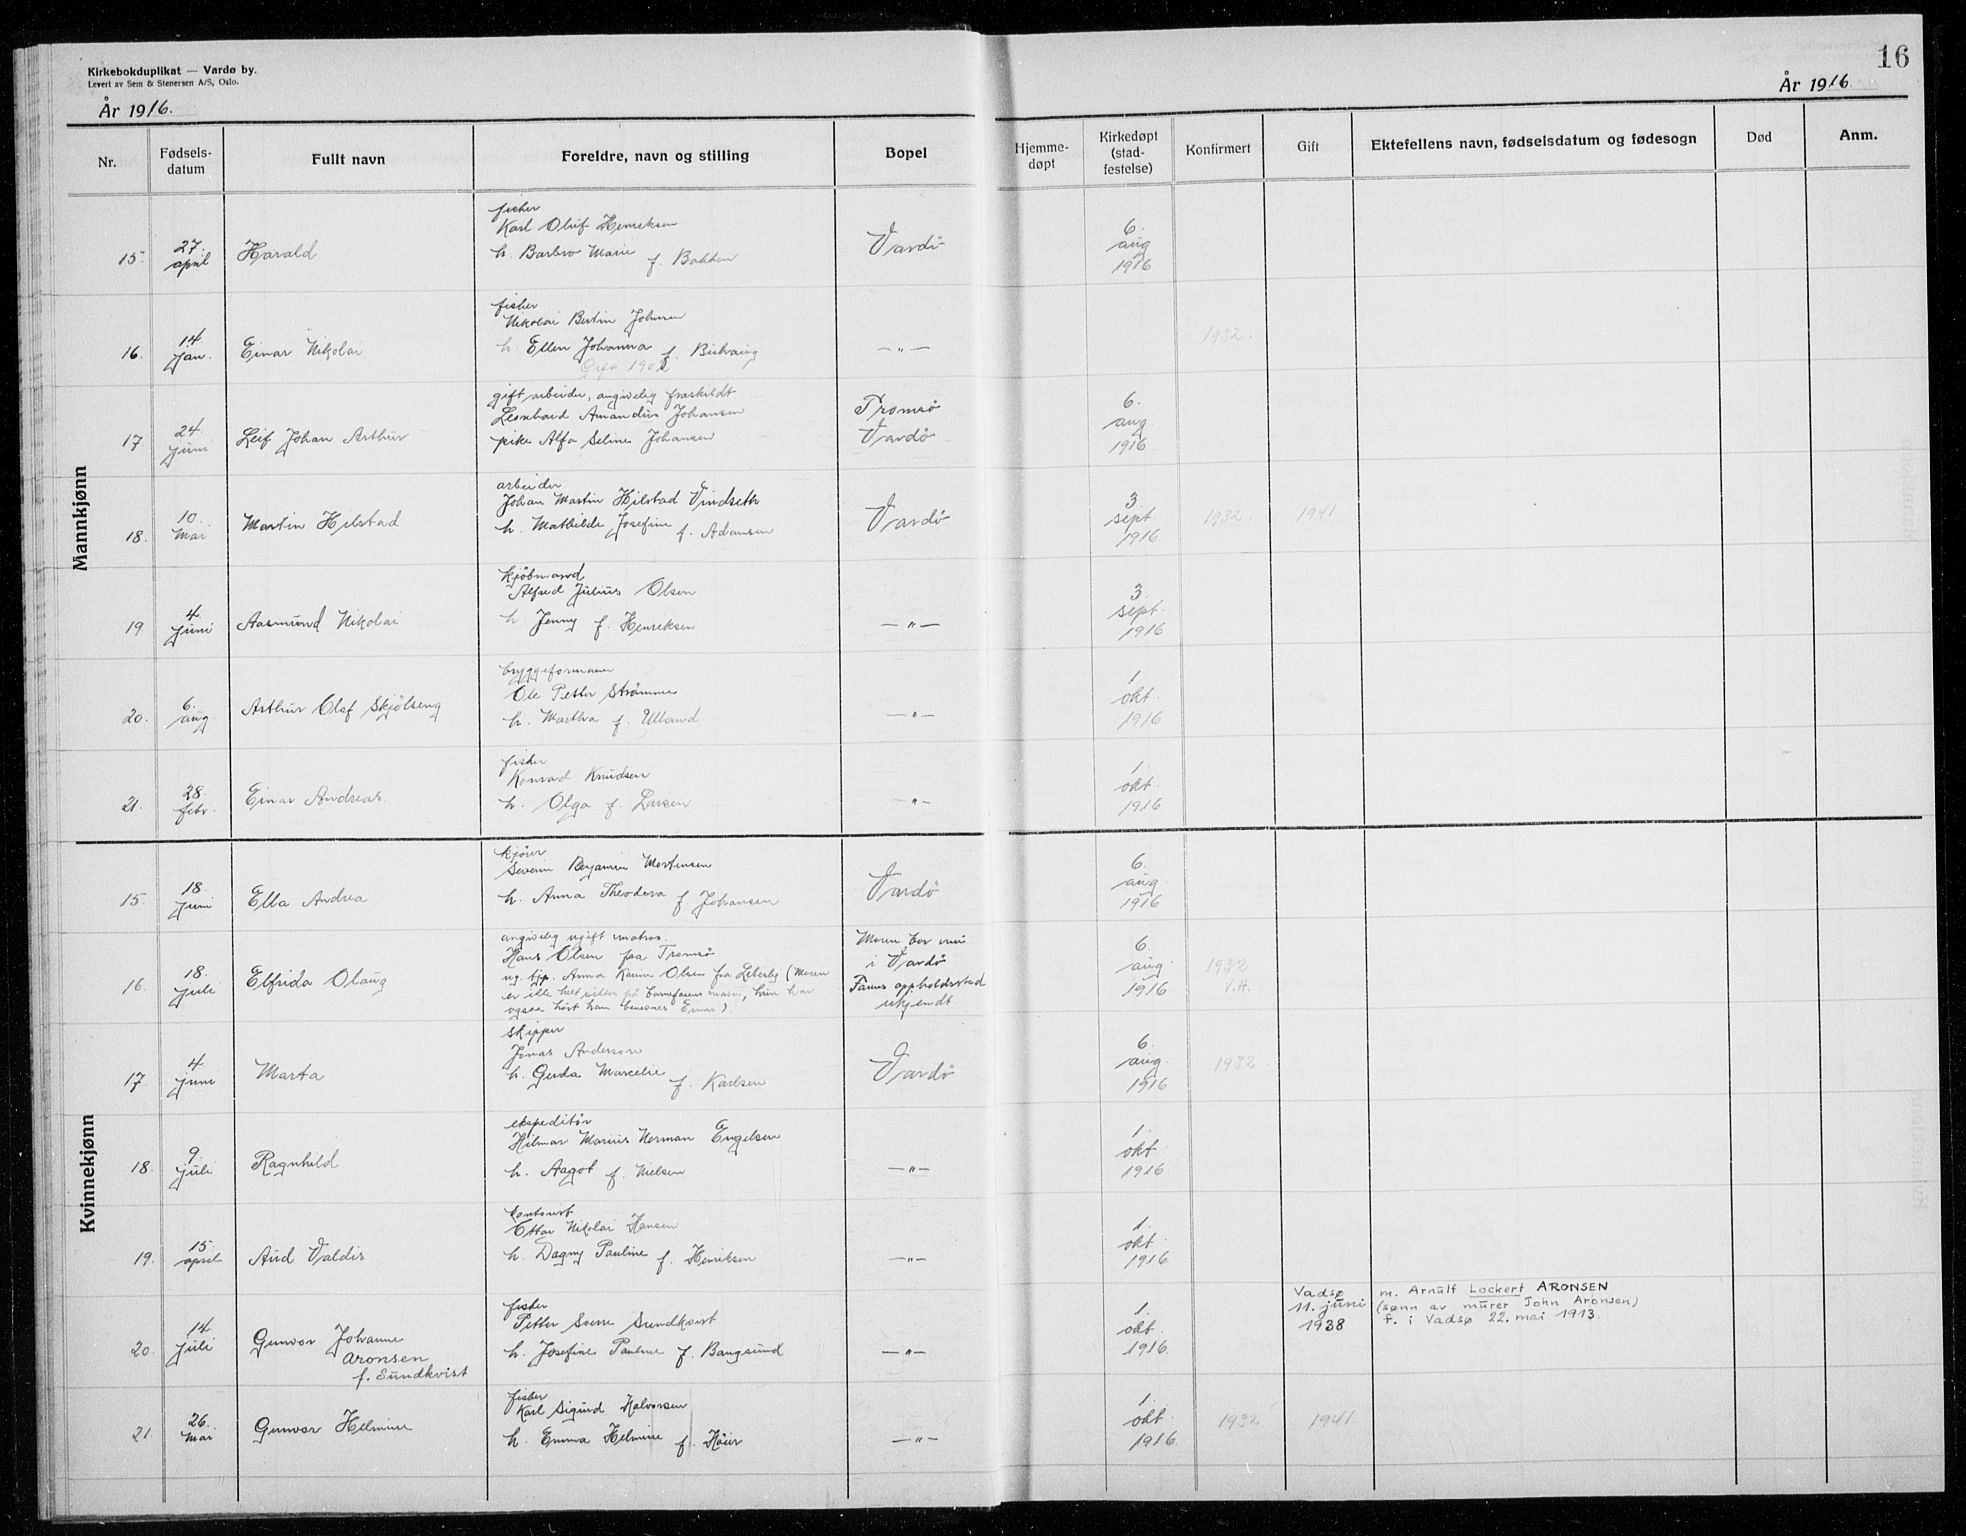 Kirkebokduplikat — Vardø by.
Levert av Sem & Stenersen A/S, Oslo.
År 1916.
16
År 1916.
Nr.
Fødsels-
datum
Fullt navn
Foreldre, navn og stilling
Bopel
Hjemme-
døpt
Kirkedøpt
(stad-
festelse)
Konfirmert
Gift
Ektefellens navn, fødselsdatum og fødesogn
Død
Anm.
Mannkjønn
15.
27.
april
Harald
fisker
Karl Oluf Henriksen
h. Barbro Marie f. Bakken
Vardø
6.
aug
1916
16.
14
jan.
Einar Nikolai
fisker
Nikolai Bertin Johnsen
h. Ellen Johanna f.
Gift
— " —
1932.
17
24.
juni
Leif Johan Arthur
gift arbeider, angivelig fraskildt
Leonhard Amandus Johansen
pike Alfa Seline Johansen
Tromsø
Vardø
6.
aug
1916
18.
10.
Mai
Martin Hilstad
arbeider
Johan Martin Hilstad Vindseth
h. Mathilde Josefine f. Adamsen
Vardø
3
sept
1916.
1932.
1941.
19
4.
juni
Aasmund Nikolai
kjøbmand
Alfred Julius Olsen
h Jenny f. Henriksen
— " —
3.
sept.
1916
20.
6.
aug.
Arthur Olaf Skjölseng
byggeformann
Ole Petter Strømmen
h. Martha f.
— " —
1.
okt.
1916
21.
28.
febr.
Einar Andreas.
fisker
Konrad Knudsen
h. Olga f. Larsen
— " —
1.
okt.
1916
Kvinnekjønn
15.
18.
juni
Ella Andrea
kjører
Severin Benjamin Mortensen
h. Anna Theodora f Johansen
Vardø
6.
aug.
1916
16.
18.
juli
Elfrida Olaug
angivelig ugift matros.
Hans Olsen fra Tromsø
ug. tjp. Anna Karine Olsen fra Lebesby (Moren
er ikke helt sikker på barnefarens navn, hun har
ogsaa hørt ham benevnes Einar)
Moren bor nu
i Vardø
Farens oppholdssted
ukjendt.
6.
aug.
1916
1932
V.H.
17.
4
juni
Marta
skipper
Jonas Anderson
h. Gerda Marcelie f. Karlsen
Vardø
6.
aug.
1916
1932.
18.
9.
juli
Ragnhild
ekspeditør
Hilmar Marius Herman Engelsen
h. Aagot f. Nielsen
— " —
1.
okt
1916
19.
15.
april
Aud Valdis
kontorist
Ottar Nikolai Hansen
h. Dagny Pauline f. Henriksen
— " —
1.
okt.
1916.
20.
14.
juli
Gunvor Johanne
Aronsen
f. Sundkvist
fisker
Petter Sverre Sundkvist
h. Josefine Pauline f. Bangsund
— " —
1.
okt.
1916.
Vadsø
11. juni
1938
m. Arnulf Lockert ARONSEN
(sønn av murer John Aronsen)
f. i Vadsø 22. mai 1913.
21.
26.
Mai
Gunvor Helmine
fisker
Karl Sigurd Halvorsen
h. Emma Helmine f. Höier
— " —
1.
okt.
1916.
1932
1941.